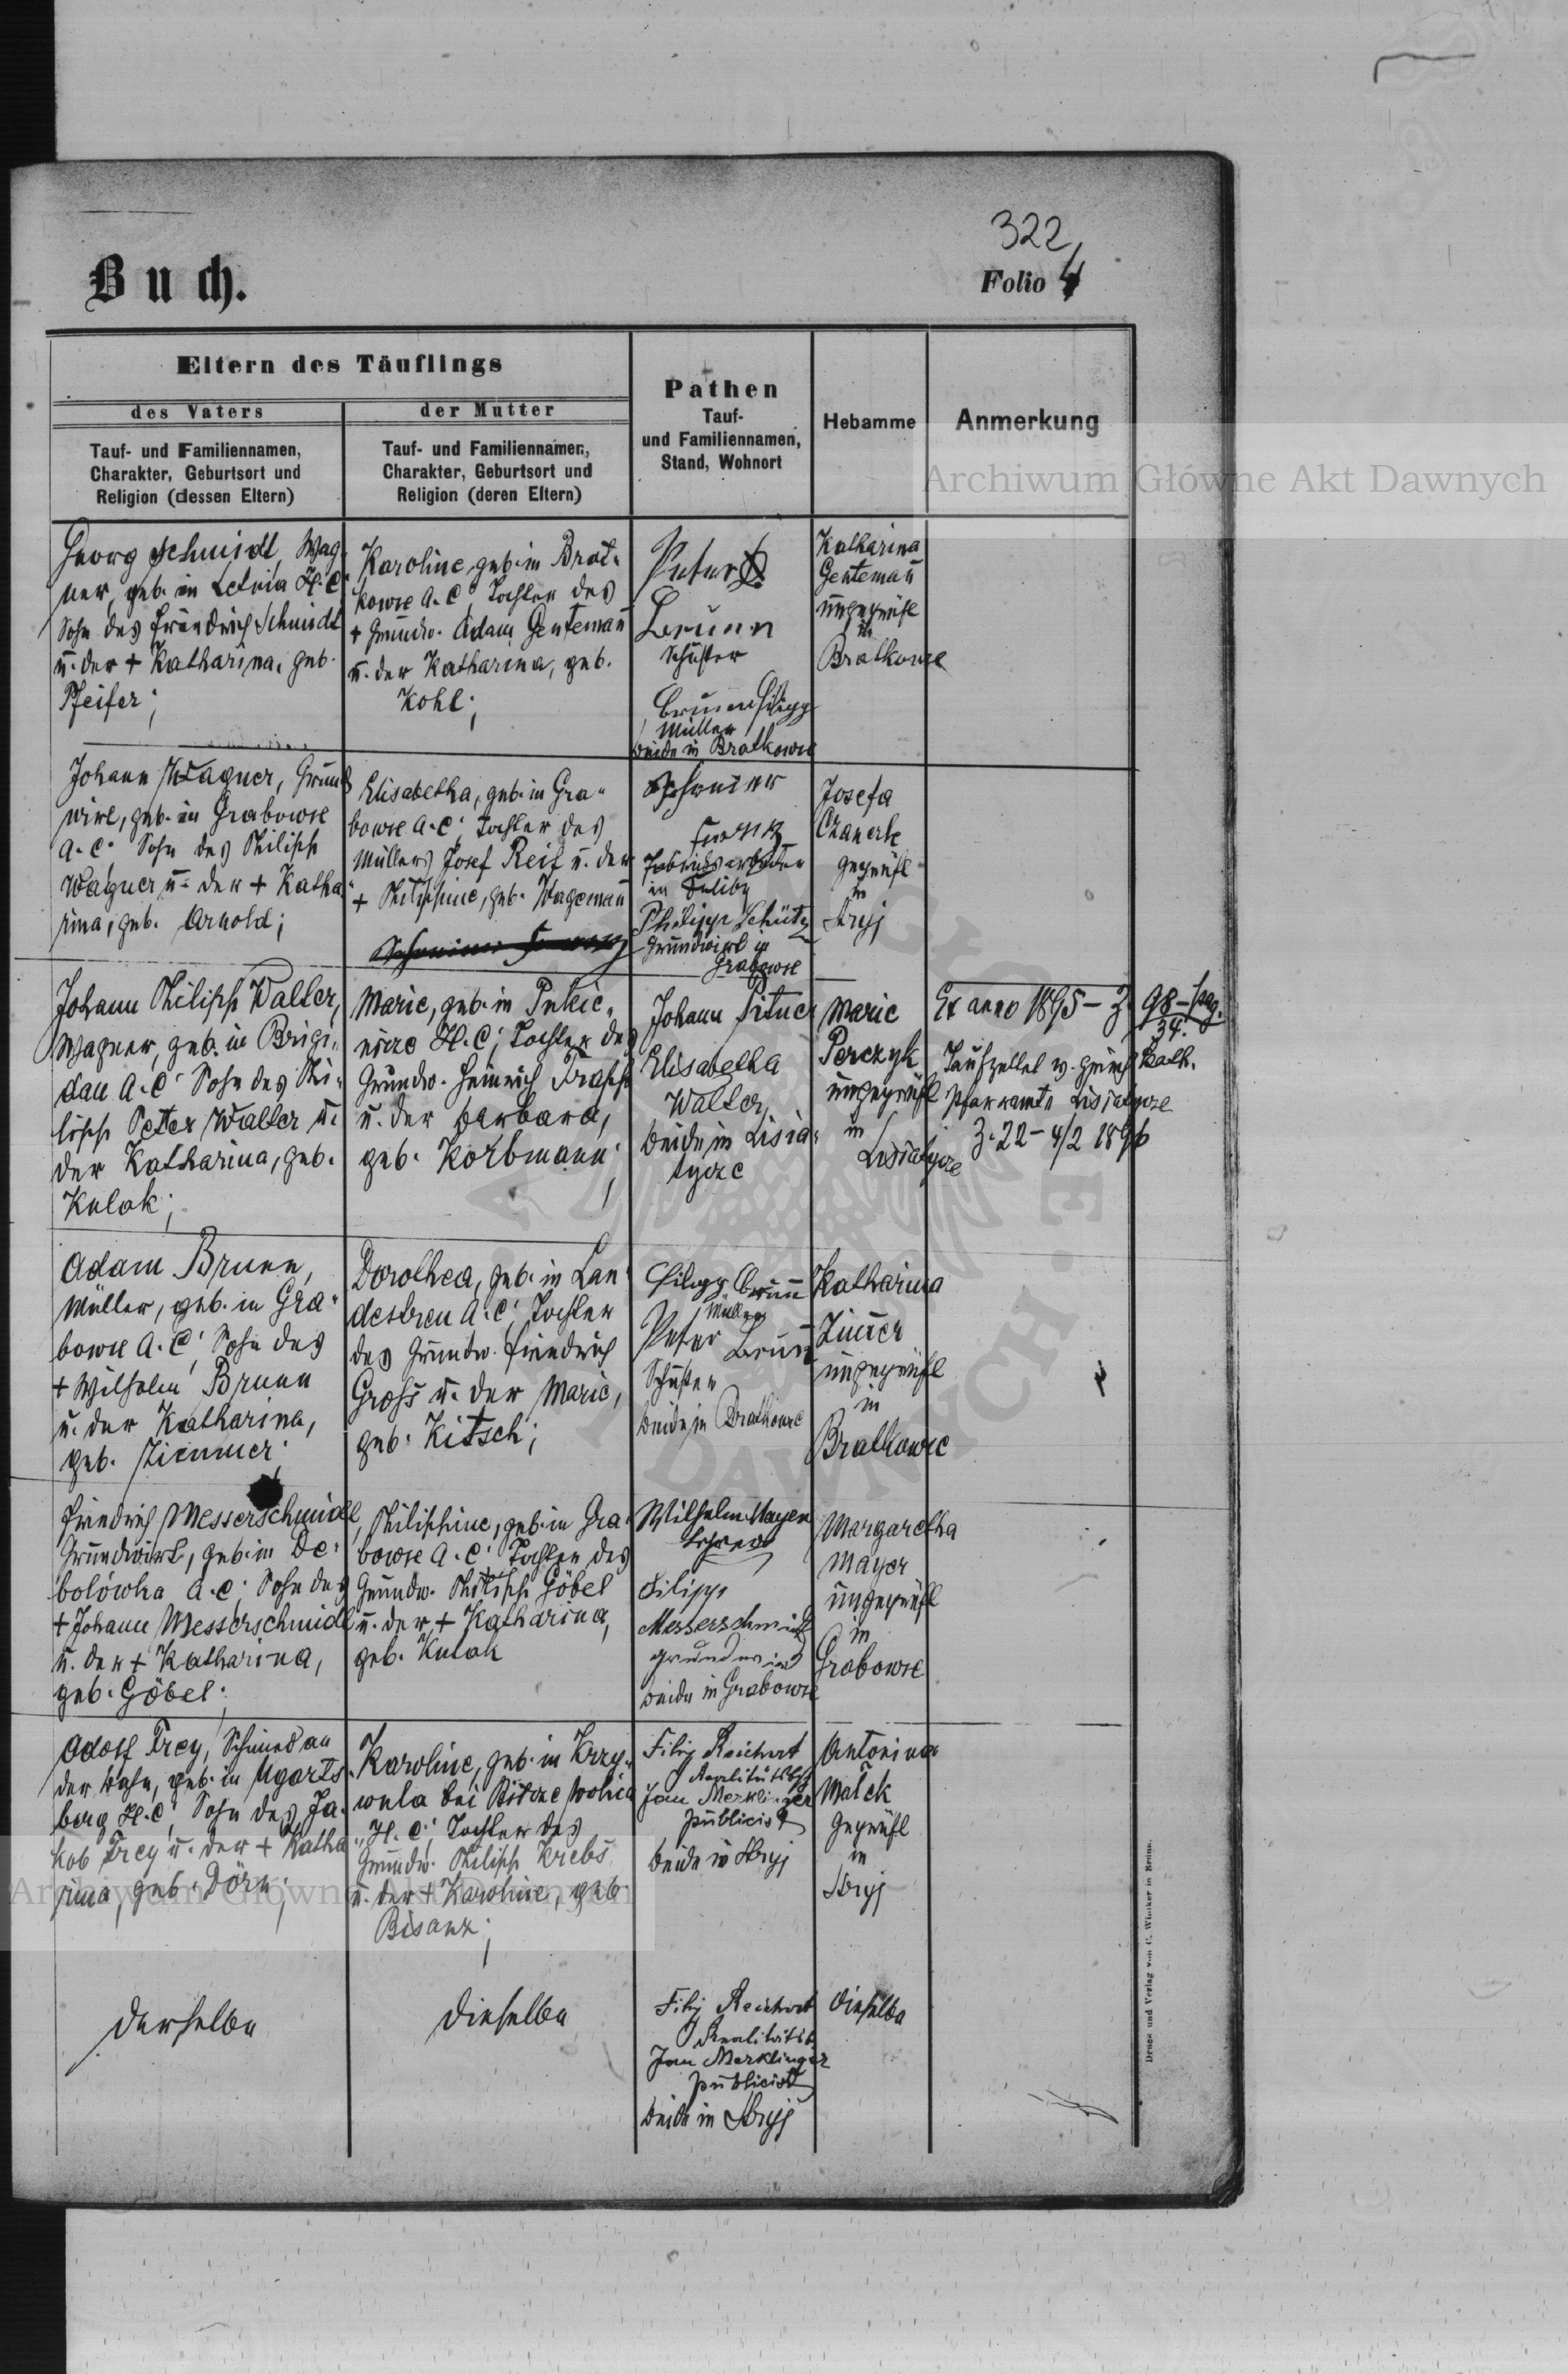 322
Buch.
Folio 4
Eltern des Täuflings
des Vaters
der Mutter
Tauf- und Familiennamen,
Charakter, Geburtsort und
Religion (dessen Eltern)
Tauf- und Familiennamen,
Charakter, Geburtsort und
Religion (deren Eltern)
Pathen
Tauf-
und Familiennamen,
Stand, Wohnort
Hebamme
Anmerkung
Archiwum Główne Akt Dawnych
Georg Schmidt, Wag-
ner, geb. in Letnia H.C.
Sohn des Friedrich Schmidt
u. der + Katharina, geb.
Pfeifer;
Karoline, geb. in Brat-
kowce A.C. Tochter des
+ Grundw. Adam Gentemañ
u. der Katharina, geb.
Kohl;
Peter
Brunn
Schuster
Brunn Filipp
Müller
beide in Bratkowce
Katharina
Gentemañ
ungeprüft
in
Bratkowce
Johann Wagner, Grund
wirt, geb. in Grabowce
A.C. Sohn des Philipp
Wagner u. der + Katha
rina, geb. Arnold;
Elisabetha, geb. in Gra-
bowce A.C; Tochter des
Müllers Josef Reif u. der
+ Philippine, geb. Wagemañ
Fabriksarbeiter
in
Philipp Schütz
Grundwirt in
Grabowce
Josefa
geprüft
in
Stryj
Johann Philipp Walter,
Wagner, geb. in Brigi-
dau A.C. Sohn des Phi-
lipp Peter Walter u.
der Katharina, geb.
Kulak;
Marie, geb. in
H.C; Tochter des
Grundw. Heinrich Trapp
u. der Barbara,
geb. Korbmann;
Johann
Elisabetha
Walter,
beide in Lisia-
tycze
Marie
Perczyk
ungeprüft
in
Lisiatycze
Ex anno 1895 - Z. 98 - pag.
34.
Taufzettel v. griech kath.
Pfarramte Lisiatycze
Z. 22 - 4/2 1896
Adam Brunn,
Müller, geb. in Gra-
bowce A.C; Sohn des
+ Wilhelm Brunn
u. der Katharina,
geb. Zimmer;
Dorothea, geb. in Lan-
destreu A.C; Tochter
des Grundw. Friedrich
Gross u. der Marie,
geb. Kitsch;
Filipp Brunn
Müller
Peter Brunn
Schuster
beide in Bratkowce
Katharina
Zim̄er
ungeprüft
in
Bratkowce
Friedrich Messerschmidt,
Grundwirt, geb. in De-
bolówka A.C; Sohn des
+ Johann Messerschmidt
u. der + Katharina,
geb. Göbel;
Philippine, geb. in Gra-
bowce A.C; Tochter des
Grundw. Philipp Göbel
u. der + Katharina,
geb. Kulak
Wilhelm Mayer
Filipp
Messerschmidt
beide in Grabowce
Margaretha
Mayer
ungeprüft
in
Grabowce
Adolf Frey, Schmied an
der Bahn, geb. in Ugarts-
berg H.C; Sohn des Ja-
kob Frey u. der + Katha
rina, geb. Dörn;
Karoline, geb. in Krzy-
wula bei
H.C; Tochter des
Grundw. Philipp Krebs
u. der + Karoline, geb.
Bisanz;
Filip Reichert
Jan Merklinger
publicist
beide in Stryj
Antonina
Małek
geprüft
in
Stryj
Archiwum Główne Akt Dawnych
derselbe
dieselbe
Filip Reichert
Jan Merklinger
publicist
beide in Stryj
dieselbe